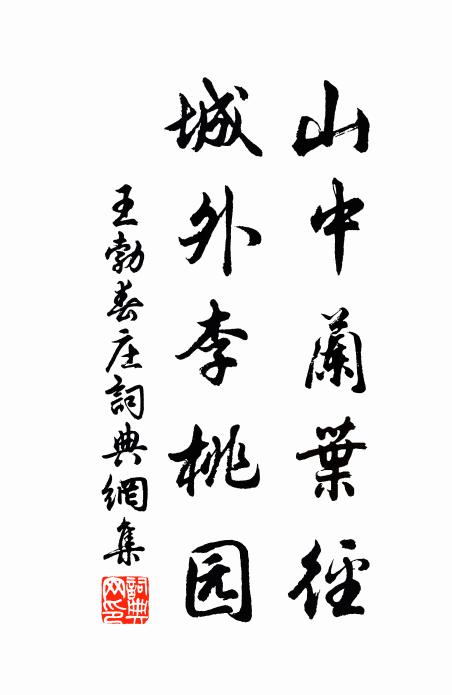 山中蘭葉徑
城外李桃园
王勃春庄詞典網集
詞典
网印